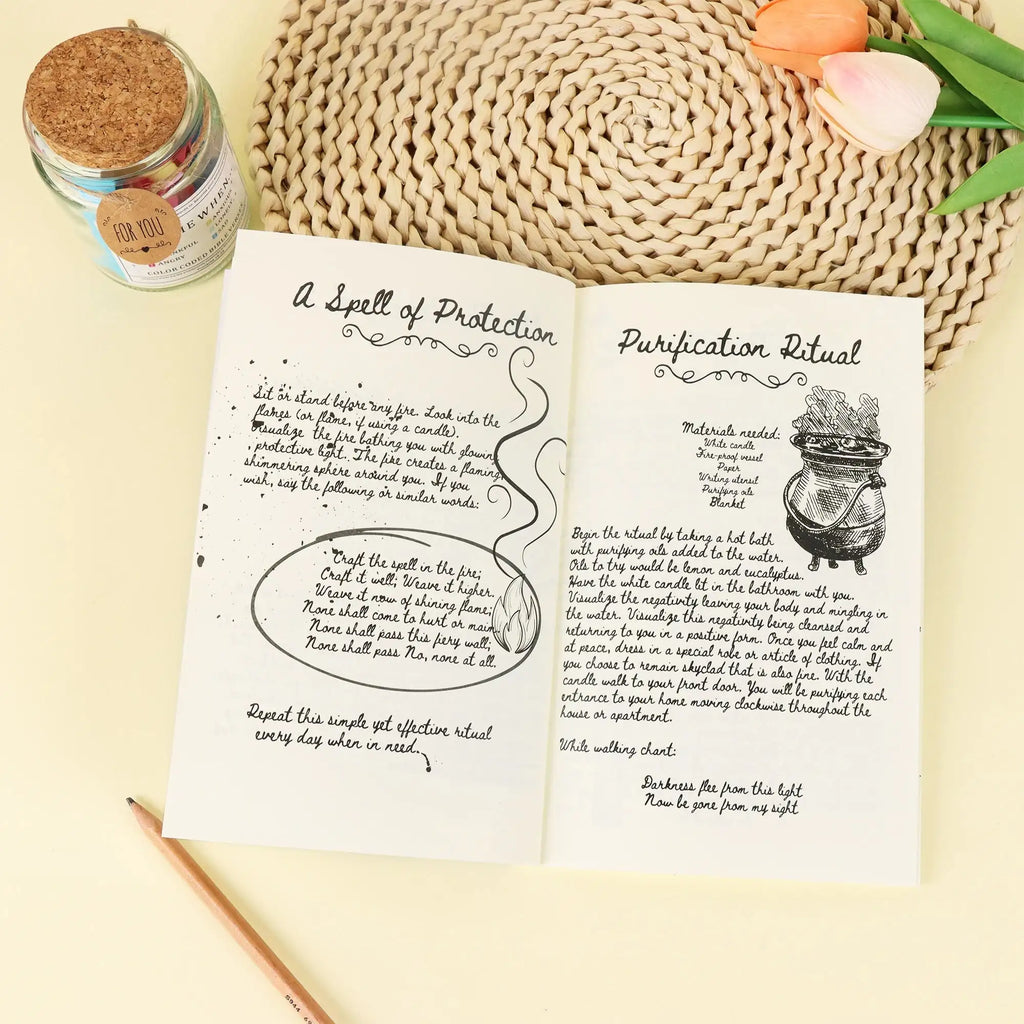 FOR YOU
ME WHEN
ANXIOUS
LONELY
SAD
ANGRY
COLOR CODED BIBLE
A Spell of Protection
Sit or stand before any fire. Look into the
flames (or flame, if using a candle).
Visualize the fire bathing you with glowing,
protective light. The fire creates a flaming,
shimmering sphere around you. If you
wish, say the following or similar words:
Craft the spell in the fire;
Craft it well; Weave it higher.
Weave it now of shining flame;
None shall come to hurt or maim
None shall pass this fiery wall;
None shall pass No, none at all.
Repeat this simple yet effective ritual
every day when in need.
Purification Ritual
Materials needed:
White candle
Fire-proof vessel
Paper
Writing utensil
Purifying oils
Blanket
Begin the ritual by taking a hot bath
with purifying oils added to the water.
Oils to try would be lemon and eucalyptus.
Have the white candle lit in the bathroom with you.
Visualize the negativity leaving your body and mingling in
the water. Visualize this negativity being cleansed and
returning to you in a positive form. Once you feel calm and
at peace, dress in a special robe or article of clothing. If
you choose to remain skyclad that is also fine. With the
candle walk to your front door. You will be purifying each
entrance to your home moving clockwise throughout the
house or apartment.
While walking chant:
Darkness flee from this light
Now be gone from my sight
5944